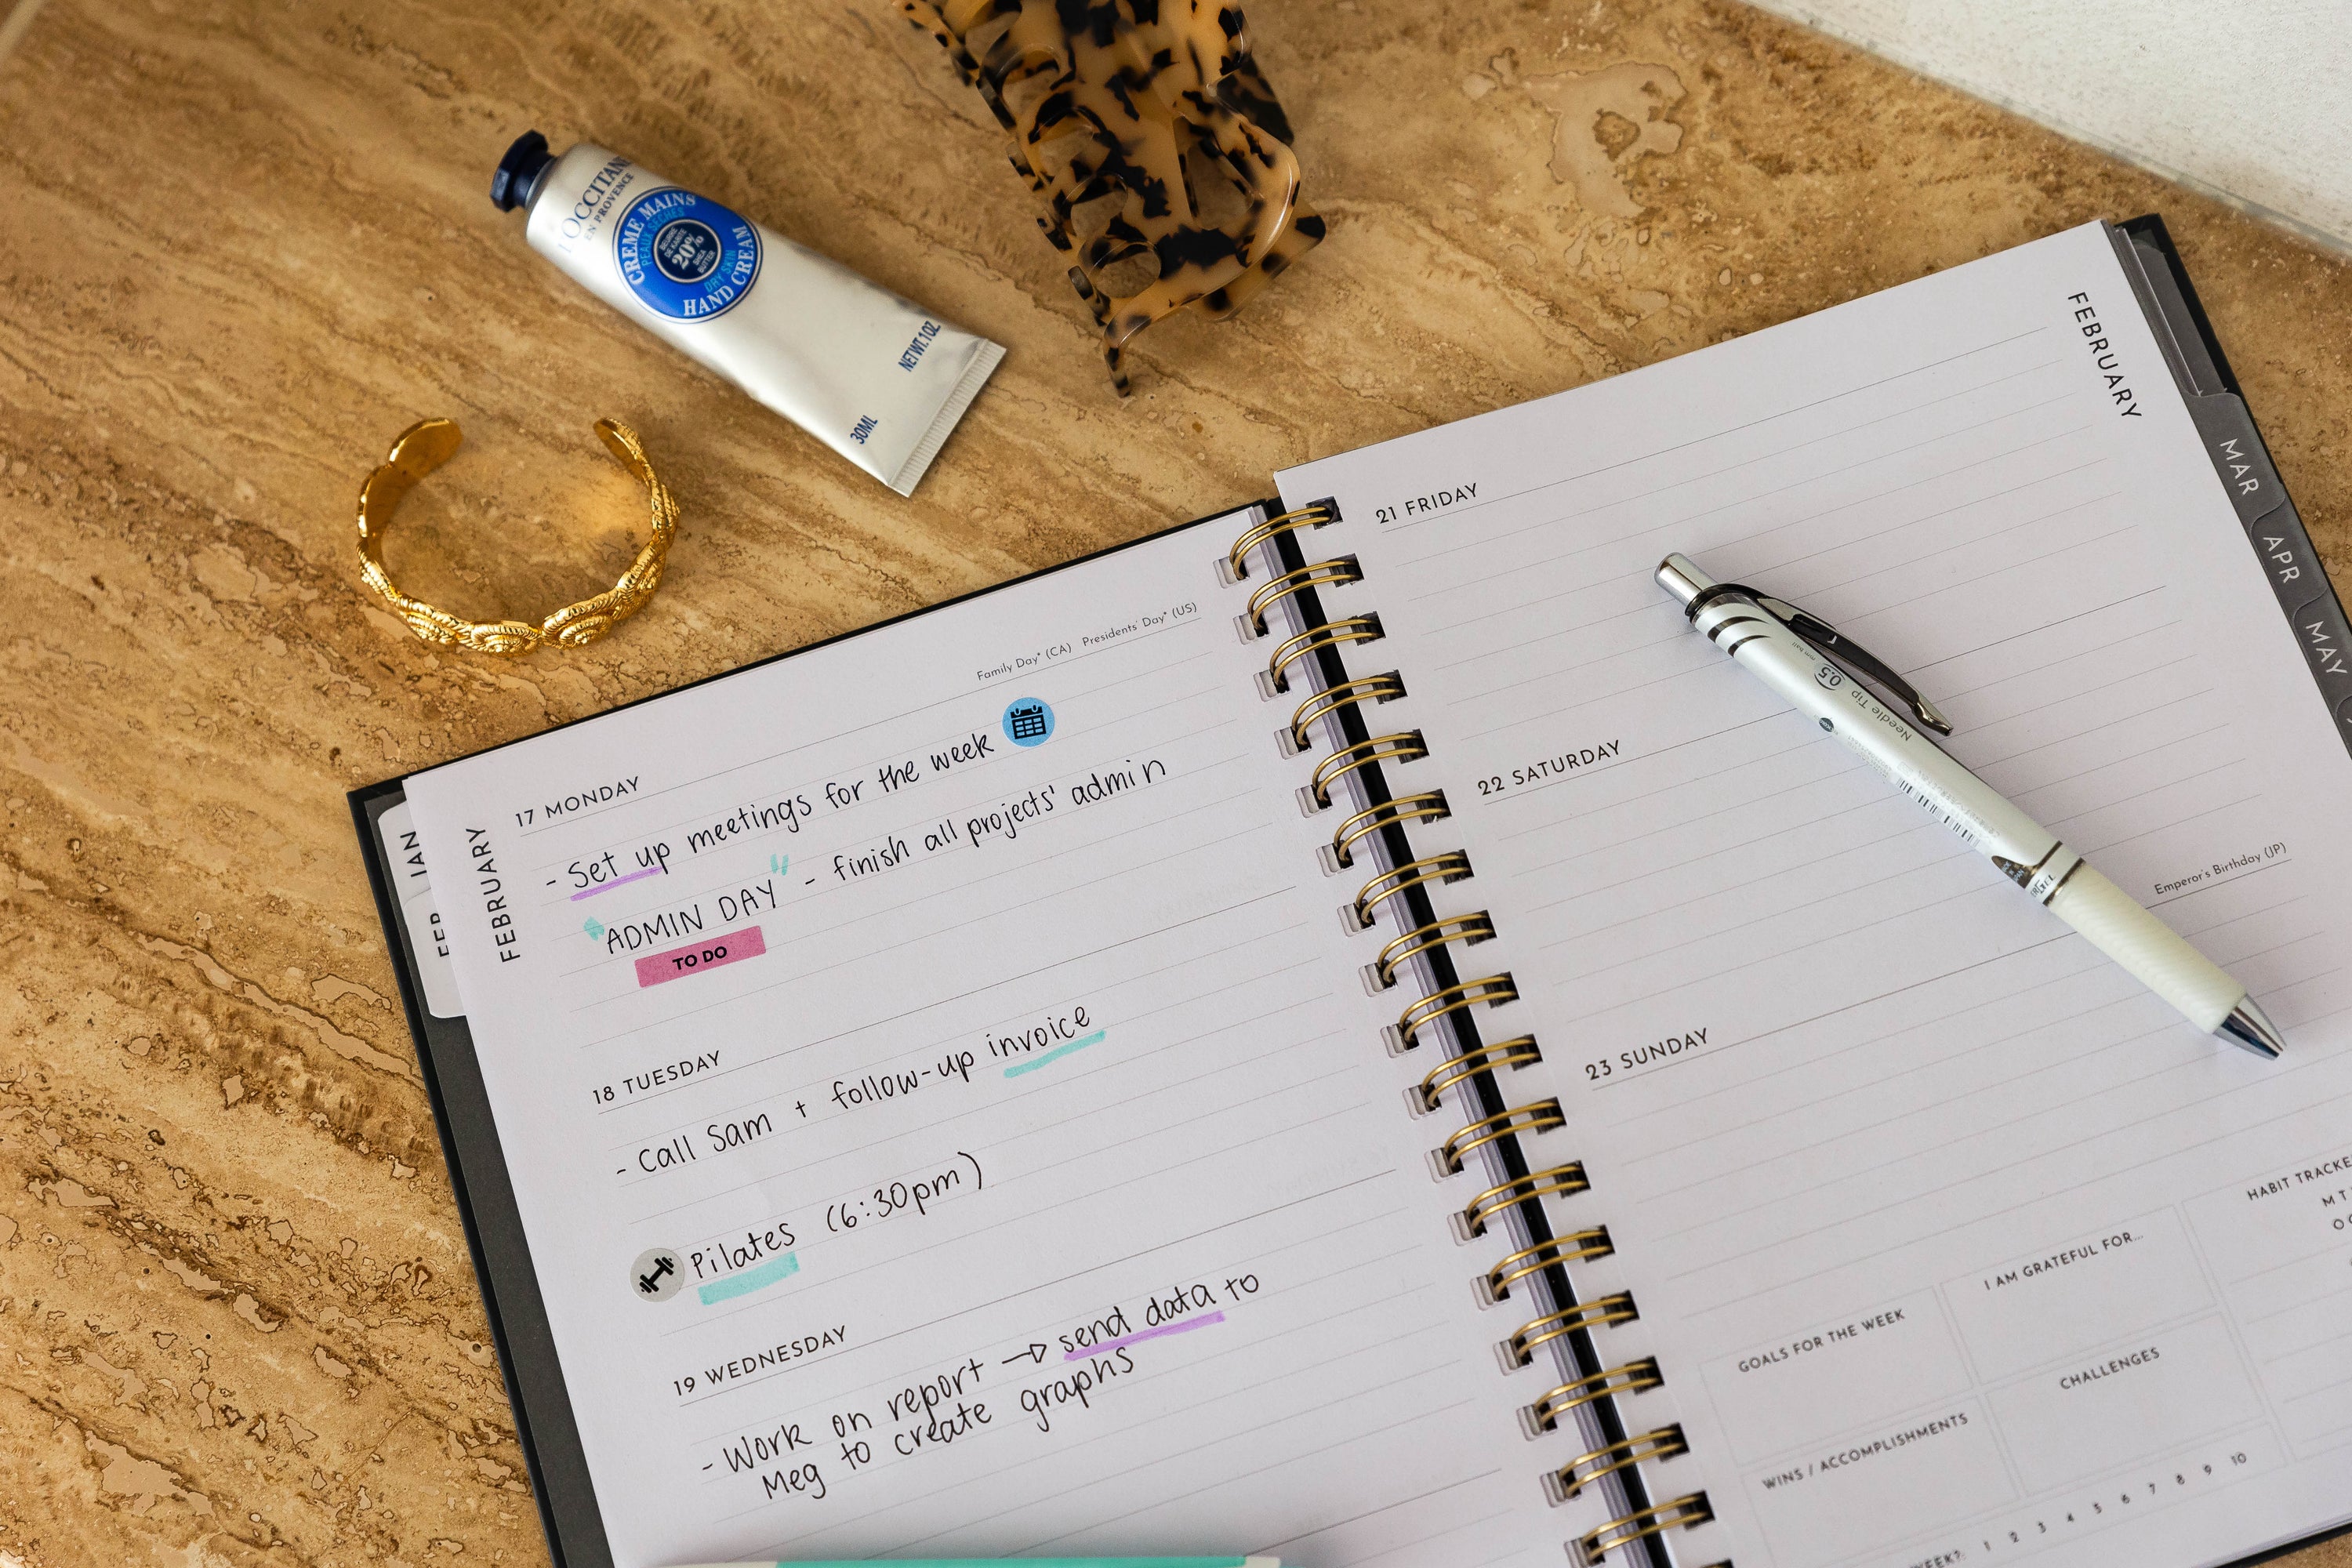 L'OCCITANE
EN PROVENCE
CREME MAINS
PEAUX SÈCHES
BEURRE
DE KARITÉ
20%
SHEA
BUTTER
DRY SKIN
HAND CREAM
NET WT. 1 OZ.
30ML
JAN
FEB
FEBRUARY
Family Day* (CA) Presidents' Day* (US)
17 MONDAY
- Set up meetings for the week
"ADMIN DAY" - finish all projects' admin
TO DO
18 TUESDAY
- Call Sam + follow-up invoice
Pilates (6:30pm)
19 WEDNESDAY
- Work on report → send data to
Meg to create graphs
FEBRUARY
MAR
APR
MAY
21 FRIDAY
22 SATURDAY
Emperor's Birthday (JP)
23 SUNDAY
0.5
Needle Tip
GOALS FOR THE WEEK
I AM GRATEFUL FOR...
HABIT TRACKE
M T
WINS / ACCOMPLISHMENTS
CHALLENGES
WEEK? 1 2 3 4 5 6 7 8 9 10